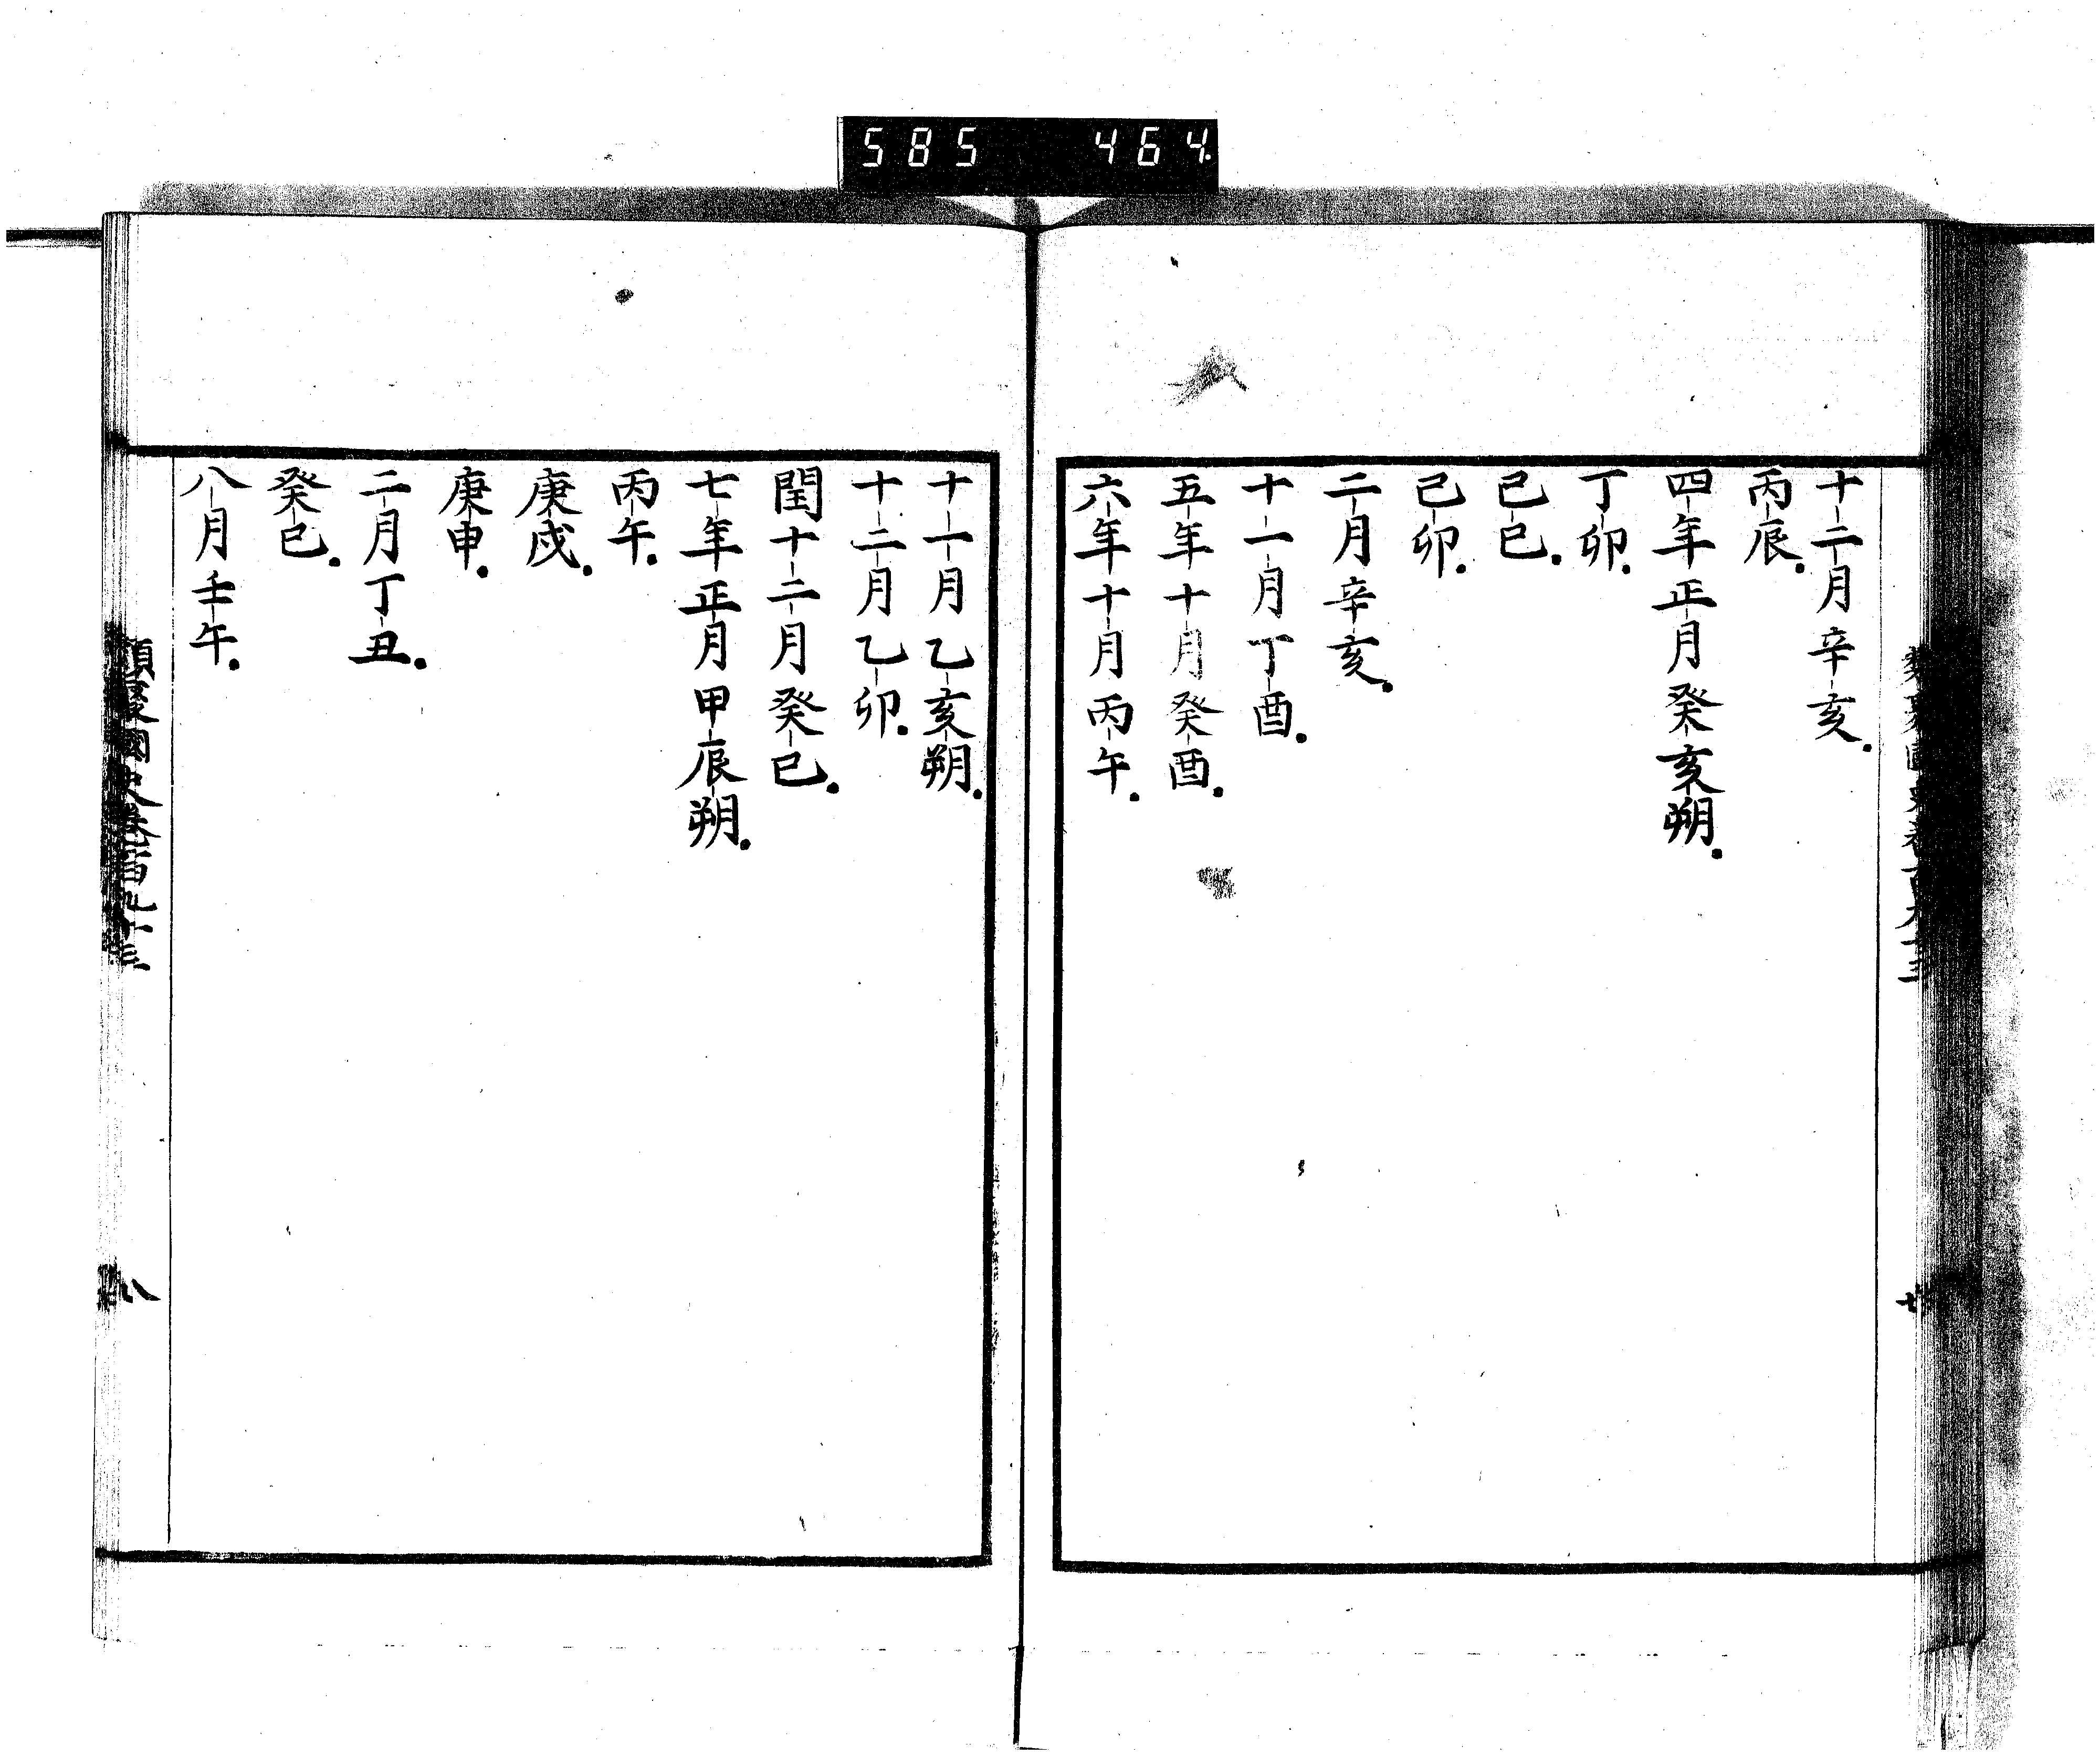 585 464
十二月辛亥.
丙辰.
四年正月癸亥朔.
丁卯.
己巳.
己卯.
二月辛亥.
十一月丁酉.
五年十月癸酉.
六年十月丙午.
十一月乙亥朔.
十二月乙卯.
閏十二月癸巳.
七年正月甲辰朔.
丙午.
庚戌.
庚申.
二月丁丑.
癸巳.
八月壬午.
國史卷百九十三
八